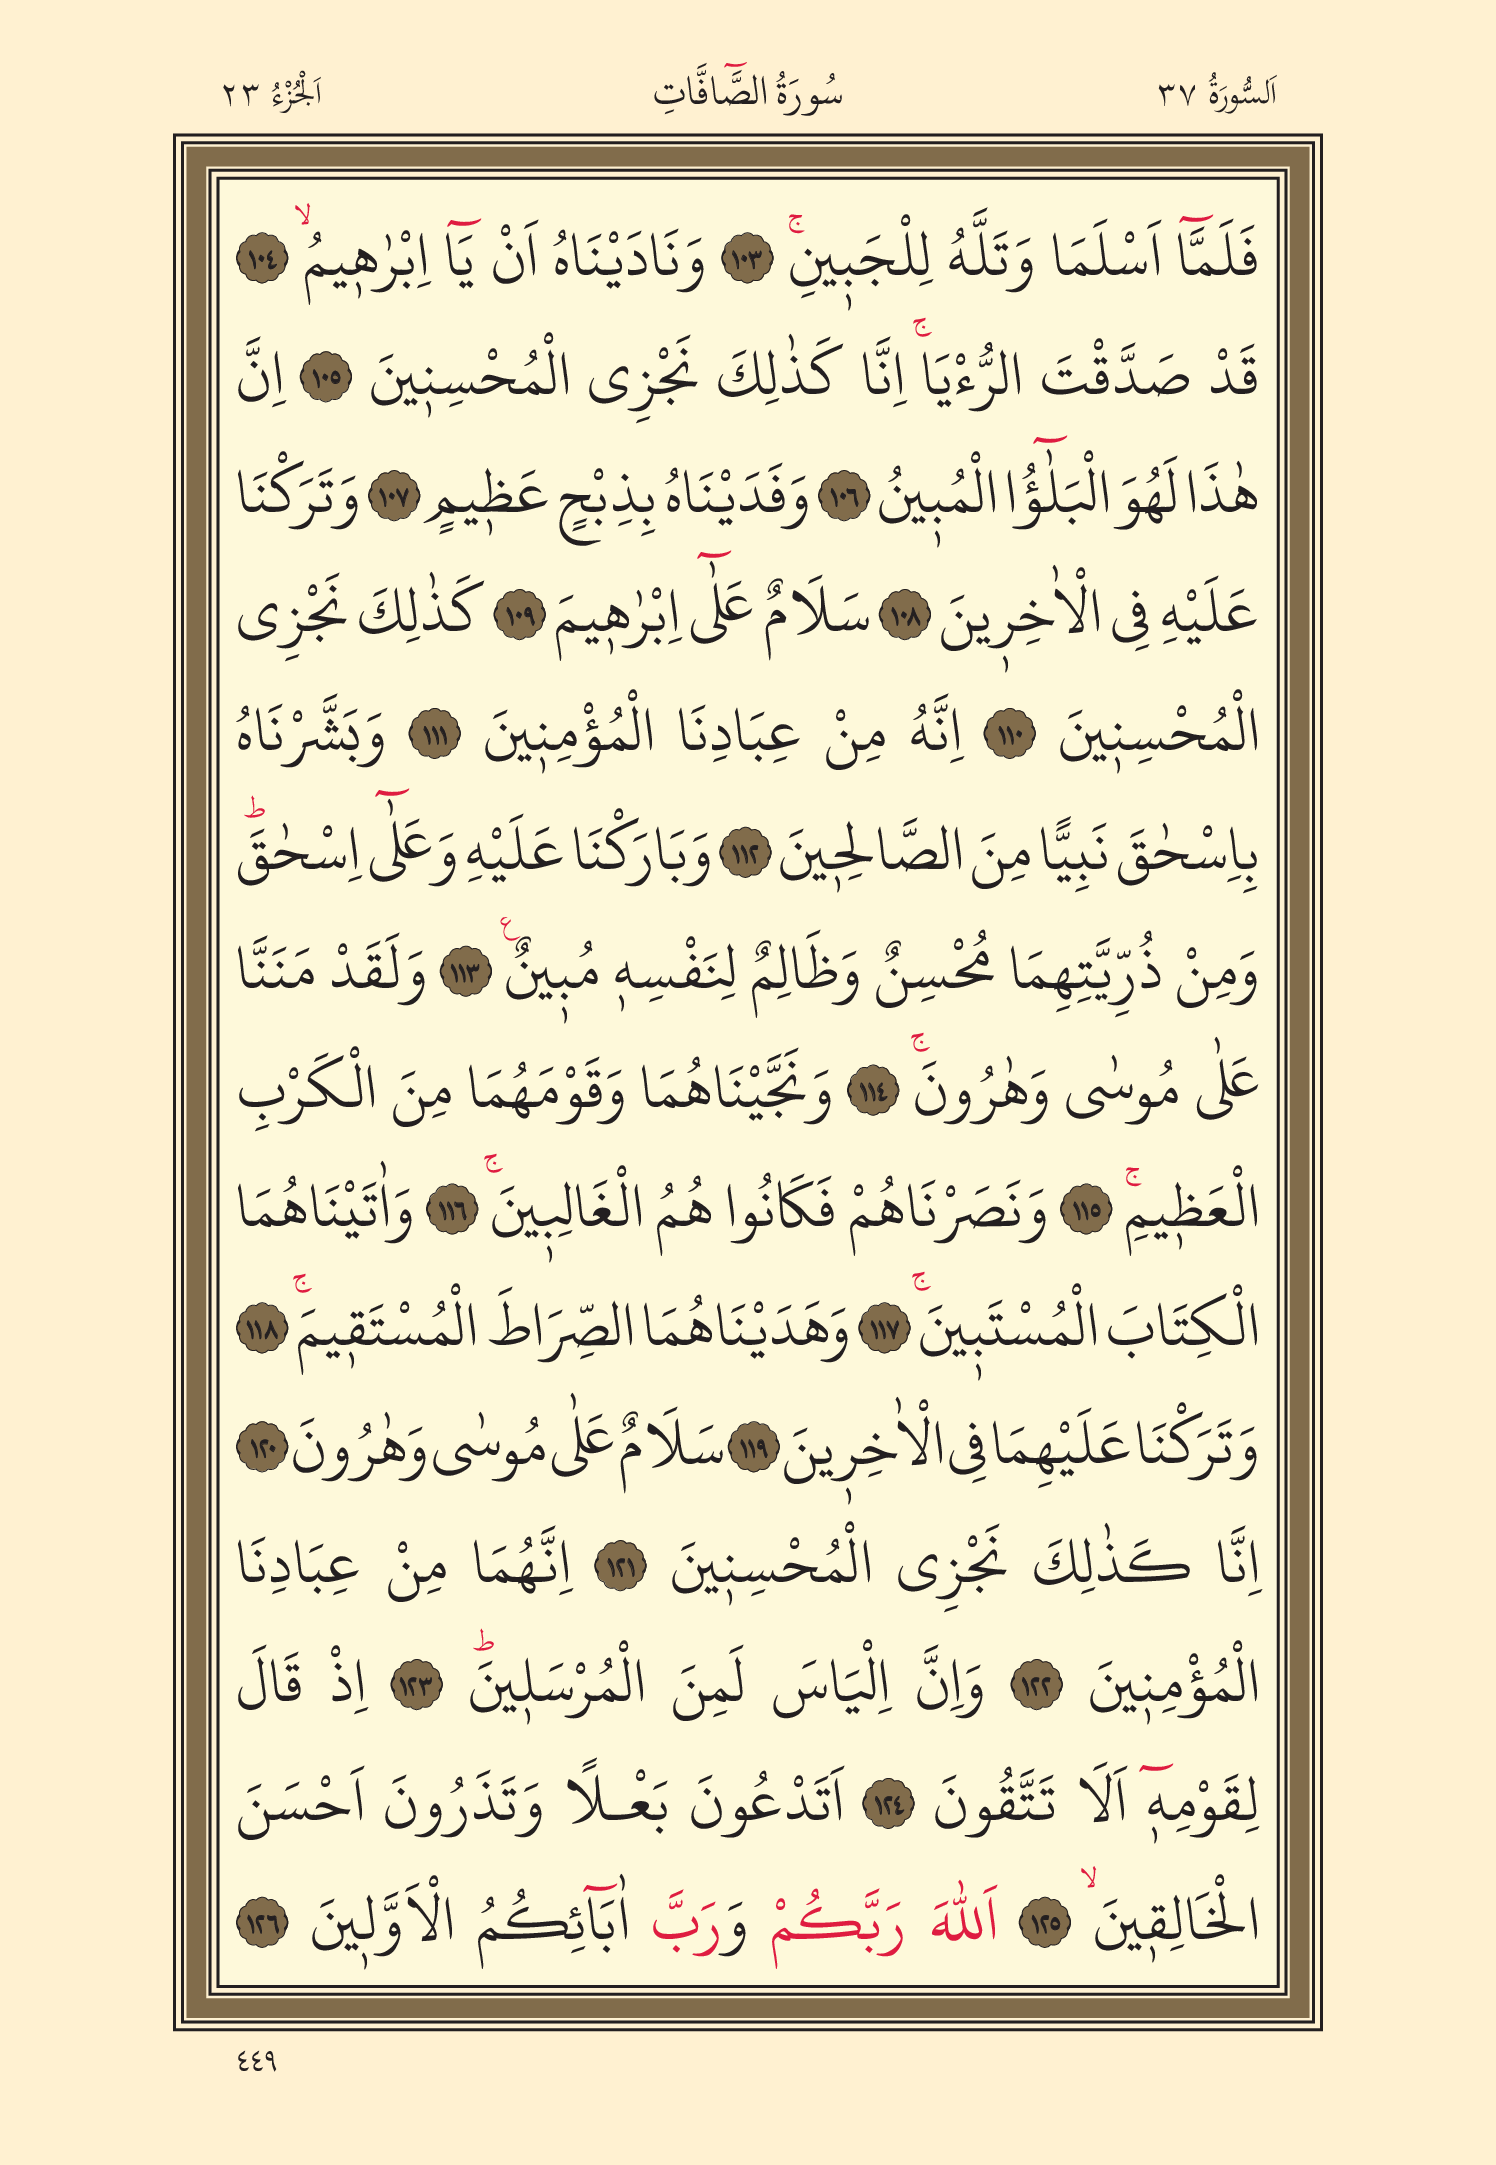 اَلسُّورَةُ ٣٧ سُورَةُ الصَّٓافَّاتِ اَلْجُزْءُ ٢٣
فَلَمَّٓا اَسْلَمَا وَتَلَّهُ لِلْجَبٖينِۚ ١٠٣ وَنَادَيْنَاهُ اَنْ يَٓا اِبْرٰهٖيمُۙ ١٠٤
قَدْ صَدَّقْتَ الرُّءْيَاۚ اِنَّا كَذٰلِكَ نَجْزِى الْمُحْسِنٖينَ ١٠٥ اِنَّ
هٰذَا لَهُوَ الْبَلٰٓؤُا الْمُبٖينُ ١٠٦ وَفَدَيْنَاهُ بِذِبْحٍ عَظٖيمٍ ١٠٧ وَتَرَكْنَا
عَلَيْهِ فِى الْاٰخِرٖينَ ١٠٨ سَلَامٌ عَلٰٓى اِبْرٰهٖيمَ ١٠٩ كَذٰلِكَ نَجْزِى
الْمُحْسِنٖينَ ١١٠ اِنَّهُ مِنْ عِبَادِنَا الْمُؤْمِنٖينَ ١١١ وَبَشَّرْنَاهُ
بِاِسْحٰقَ نَبِيًّا مِنَ الصَّالِحٖينَ ١١٢ وَبَارَكْنَا عَلَيْهِ وَعَلٰٓى اِسْحٰقَؕ
وَمِنْ ذُرِّيَّتِهِمَا مُحْسِنٌ وَظَالِمٌ لِنَفْسِهٖ مُبٖينٌ ع ١١٣ وَلَقَدْ مَنَنَّا
عَلٰى مُوسٰى وَهٰرُونَۚ ١١٤ وَنَجَّيْنَاهُمَا وَقَوْمَهُمَا مِنَ الْكَرْبِ
الْعَظٖيمِۚ ١١٥ وَنَصَرْنَاهُمْ فَكَانُوا هُمُ الْغَالِبٖينَۚ ١١٦ وَاٰتَيْنَاهُمَا
الْكِتَابَ الْمُسْتَبٖينَۚ ١١٧ وَهَدَيْنَاهُمَا الصِّرَاطَ الْمُسْتَقٖيمَۚ ١١٨
وَتَرَكْنَا عَلَيْهِمَا فِى الْاٰخِرٖينَ ١١٩ سَلَامٌ عَلٰى مُوسٰى وَهٰرُونَ ١٢٠
اِنَّا كَذٰلِكَ نَجْزِى الْمُحْسِنٖينَ ١٢١ اِنَّهُمَا مِنْ عِبَادِنَا
الْمُؤْمِنٖينَ ١٢٢ وَاِنَّ اِلْيَاسَ لَمِنَ الْمُرْسَلٖينَؕ ١٢٣ اِذْ قَالَ
لِقَوْمِهٖٓ اَلَا تَتَّقُونَ ١٢٤ اَتَدْعُونَ بَعْلًا وَتَذَرُونَ اَحْسَنَ
الْخَالِقٖينَۙ ١٢٥ اَللّٰهَ رَبَّكُمْ وَرَبَّ اٰبَٓائِكُمُ الْاَوَّلٖينَ ١٢٦
٤٤٩